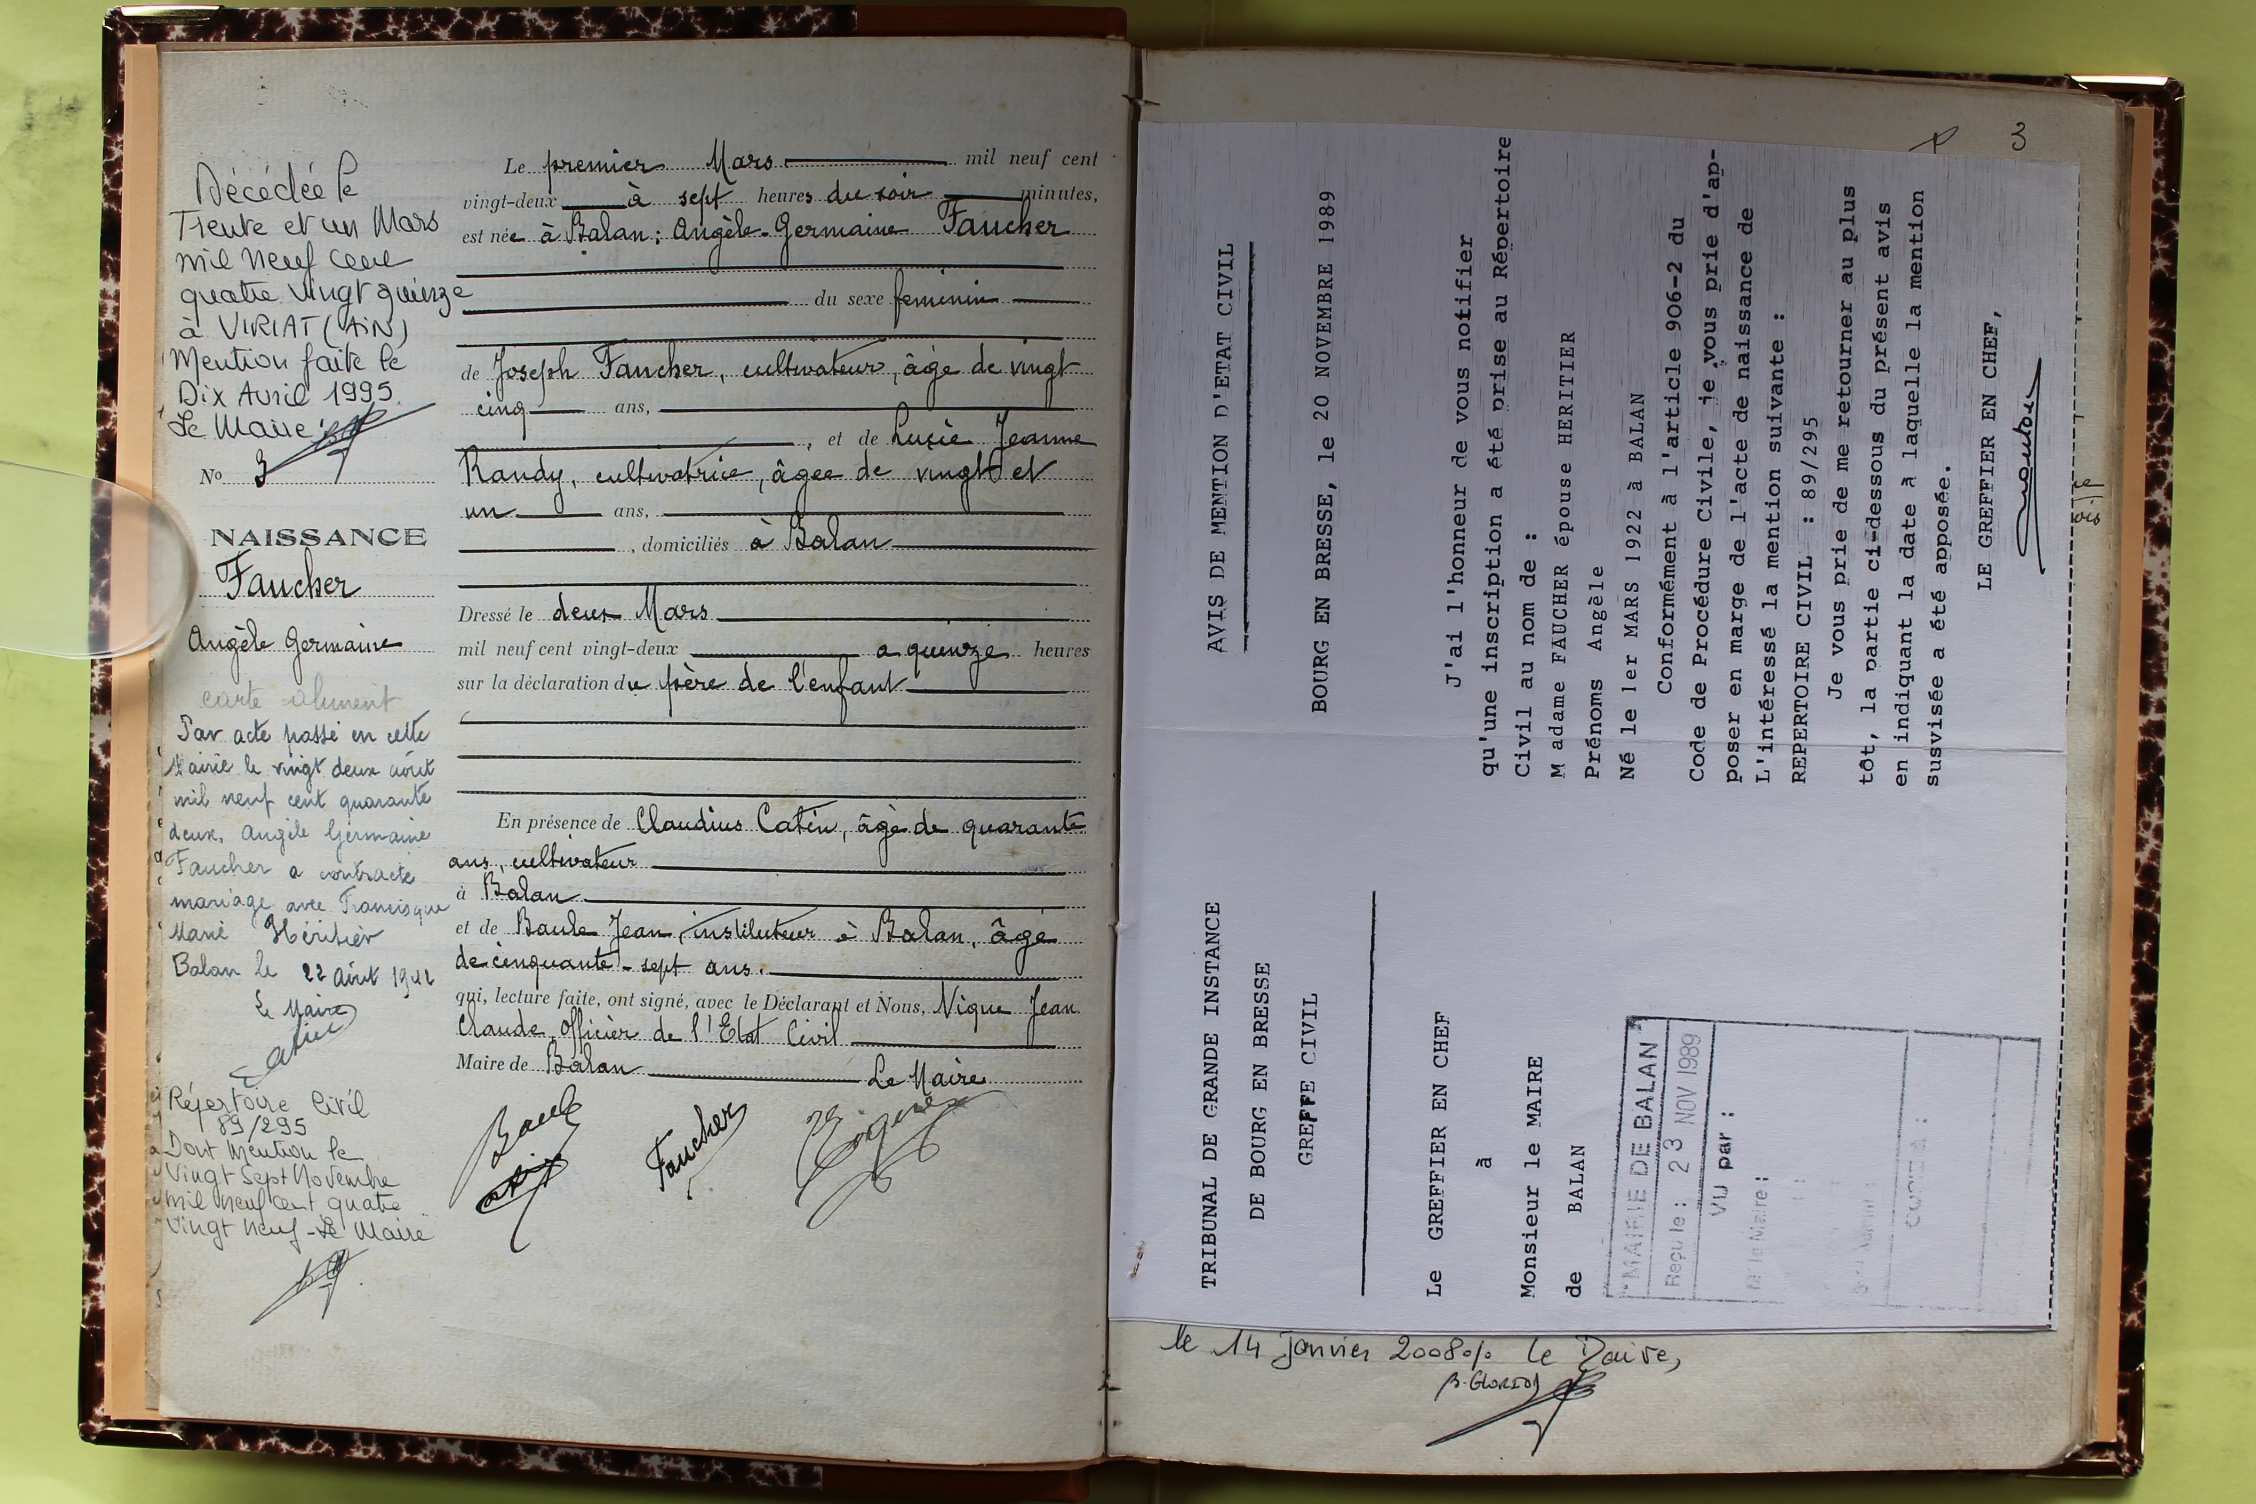 Décédée le
Trente et un Mars
mil neuf cent
quatre vingt quinze
à VIRIAT (AIN)
Mention faite le
Dix Avril 1995.
Le Maire
No 3
NAISSANCE
Faucher
Angèle Germaine
carte aliment
Par acte passé en cette
Mairie le vingt deux août
mil neuf cent quarante
deux, Angèle Germaine
Faucher a contracté
mariage avec Francisque
Marie Héritier
Balan le 22 Août 1942
Le Maire
Catin
Répertoire Civil
89/295
Dont Mention le
Vingt Sept Novembre
mil neuf cent quatre
Vingt Neuf - Le Maire
Le premier Mars mil neuf cent
vingt-deux à sept heures du soir minutes,
est née à Balan : Angèle-Germaine Faucher
du sexe feminin
de Joseph Faucher, cultivateur, âgé de vingt
cinq ans,
, et de Lucie Jeanne
Randy, cultivatrice, âgée de vingt et
un ans,
, domiciliés à Balan
Dressé le deux Mars
mil neuf cent vingt-deux a quinze heures
sur la déclaration du père de l'enfant
En présence de Claudius Catin, âgé de quarante
ans, cultivateur
à Balan
et de Baule Jean, instituteur à Balan, âgé
de cinquante-sept ans.
qui, lecture faite, ont signé, avec le Déclarant et Nous, Nique Jean
Claude, Officier de l'Etat Civil
Maire de Balan Le Maire
Baule
Faucher
3
TRIBUNAL DE GRANDE INSTANCE
DE BOURG EN BRESSE
GREFFE CIVIL
Le GREFFIER EN CHEF
à
Monsieur le MAIRE
de BALAN
MAIRIE DE BALAN
Reçu le : 23 NOV 1989
VU par :
M. le Maire :
AVIS DE MENTION D'ETAT CIVIL
BOURG EN BRESSE, le 20 NOVEMBRE 1989
J'ai l'honneur de vous notifier
qu'une inscription a été prise au Répertoire
Civil au nom de :
M adame FAUCHER épouse HERITIER
Prénoms Angèle
Né le 1er MARS 1922 à BALAN
Conformément à l'article 906-2 du
Code de Procédure Civile, je vous prie d'ap-
poser en marge de l'acte de naissance de
L'intéressé la mention suivante :
REPERTOIRE CIVIL : 89/295
Je vous prie de me retourner au plus
tôt, la partie ci-dessous du présent avis
en indiquant la date à laquelle la mention
susvisée a été apposée.
LE GREFFIER EN CHEF,
le 14 janvier 2008 Le Maire,